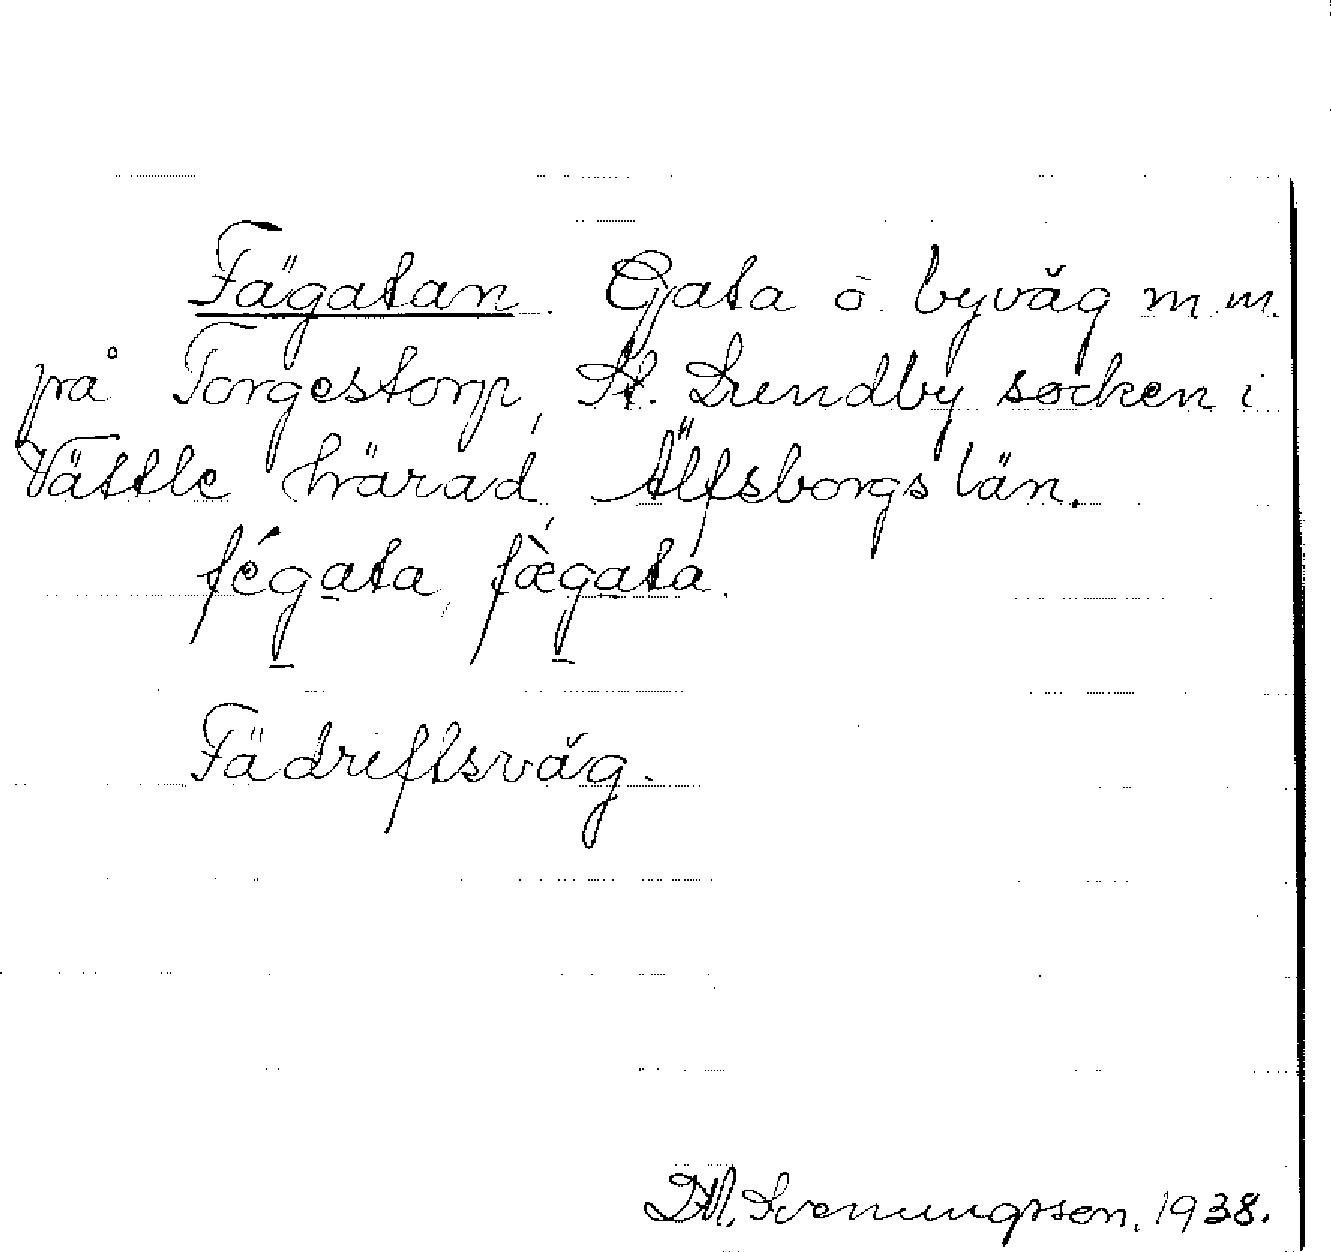 Fägatan. Gata o. byväg m.m.
på Torgestorp, St. Lundby socken i
Vättle härad, Älfsborgs län.
fégata, fægata.
Fädriftsväg.
Svenungsson. 1938.